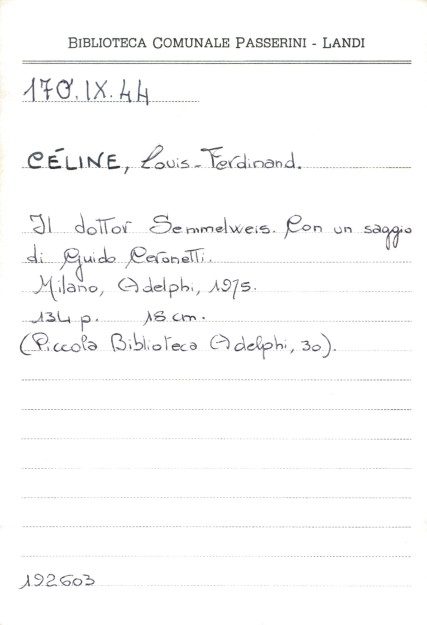 BIBLIOTECA COMUNALE PASSERINI - LANDI
170.IX.44
CÉLINE, Louis-Ferdinand.
Il dottor Semmelweis. Con un saggio
di Guido Ceronetti.
Milano, Adelphi, 1975.
134 p. 18 cm.
(Piccola Biblioteca Adelphi, 30).
192603